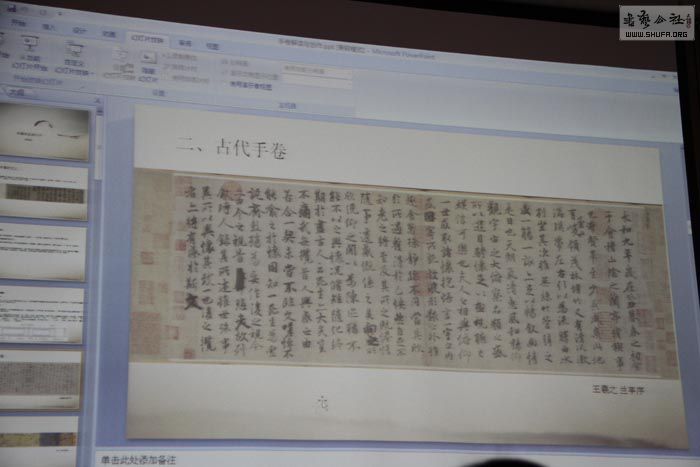 书艺公社
WWW.SHUFA.ORG
Microsoft PowerPoint
开始
插入
设计
动画
幻灯片放映
审阅
视图
自定义
隐藏
设置
监视器
大纲
二、古代手卷
永和九年歲在癸丑暮春之初會
于會稽山陰之蘭亭脩稧事
也群賢畢至少長咸集此地
有峻領茂林脩竹又有清流激
湍暎帶左右引以為流觴曲水
列坐其次雖無絲竹管弦之
盛一觴一詠上足以暢敘幽情
是日也天朗氣清惠風和暢仰
觀宇宙之大俯察品類之盛
所以遊目騁懷足以極視聽之
娛信可樂也夫人之相與俯仰
一世或取諸懷抱悟言一室之內
或因寄所託放浪形骸之外雖
趣舍萬殊靜躁不同當其欣
於所遇暫得於己怏然自足不
知老之將至及其所之既惓情
隨事遷感慨係之矣向之所
欣俛仰之間以為陳迹猶不
能不以之興懷況脩短隨化終
期於盡古人云死生亦大矣豈
不痛哉每攬昔人興感之由
若合一契未嘗不臨文嗟悼不
能喻之於懷固知一死生為虛
誕齊彭殤為妄作後之視今
亦由今之視昔悲夫故列
敘時人錄其所述雖世殊事
異所以興懷其致一也後之攬
者亦將有感於斯文
王羲之 兰亭序
单击此处添加备注